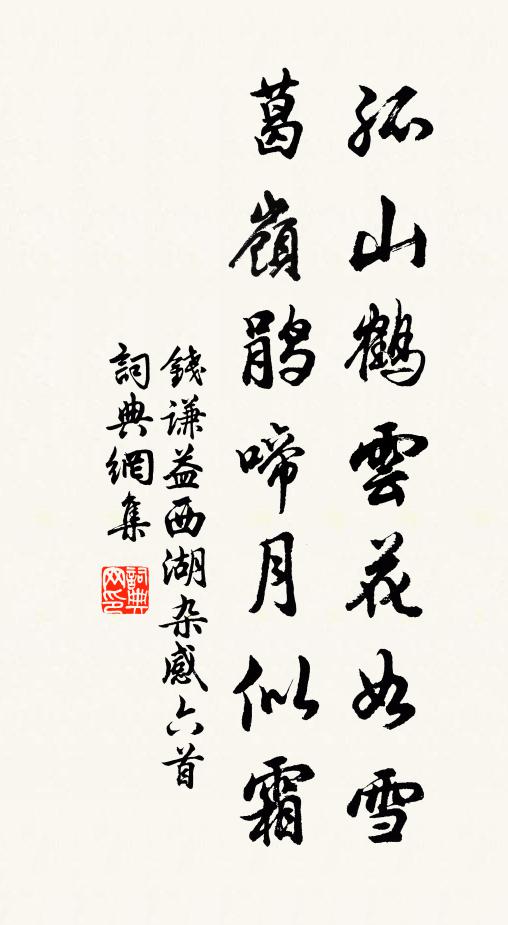 孤山鶴雲花如雪
葛嶺鵑啼月似霜
錢谦益西湖杂感六首
詞典網集
詞典
网印